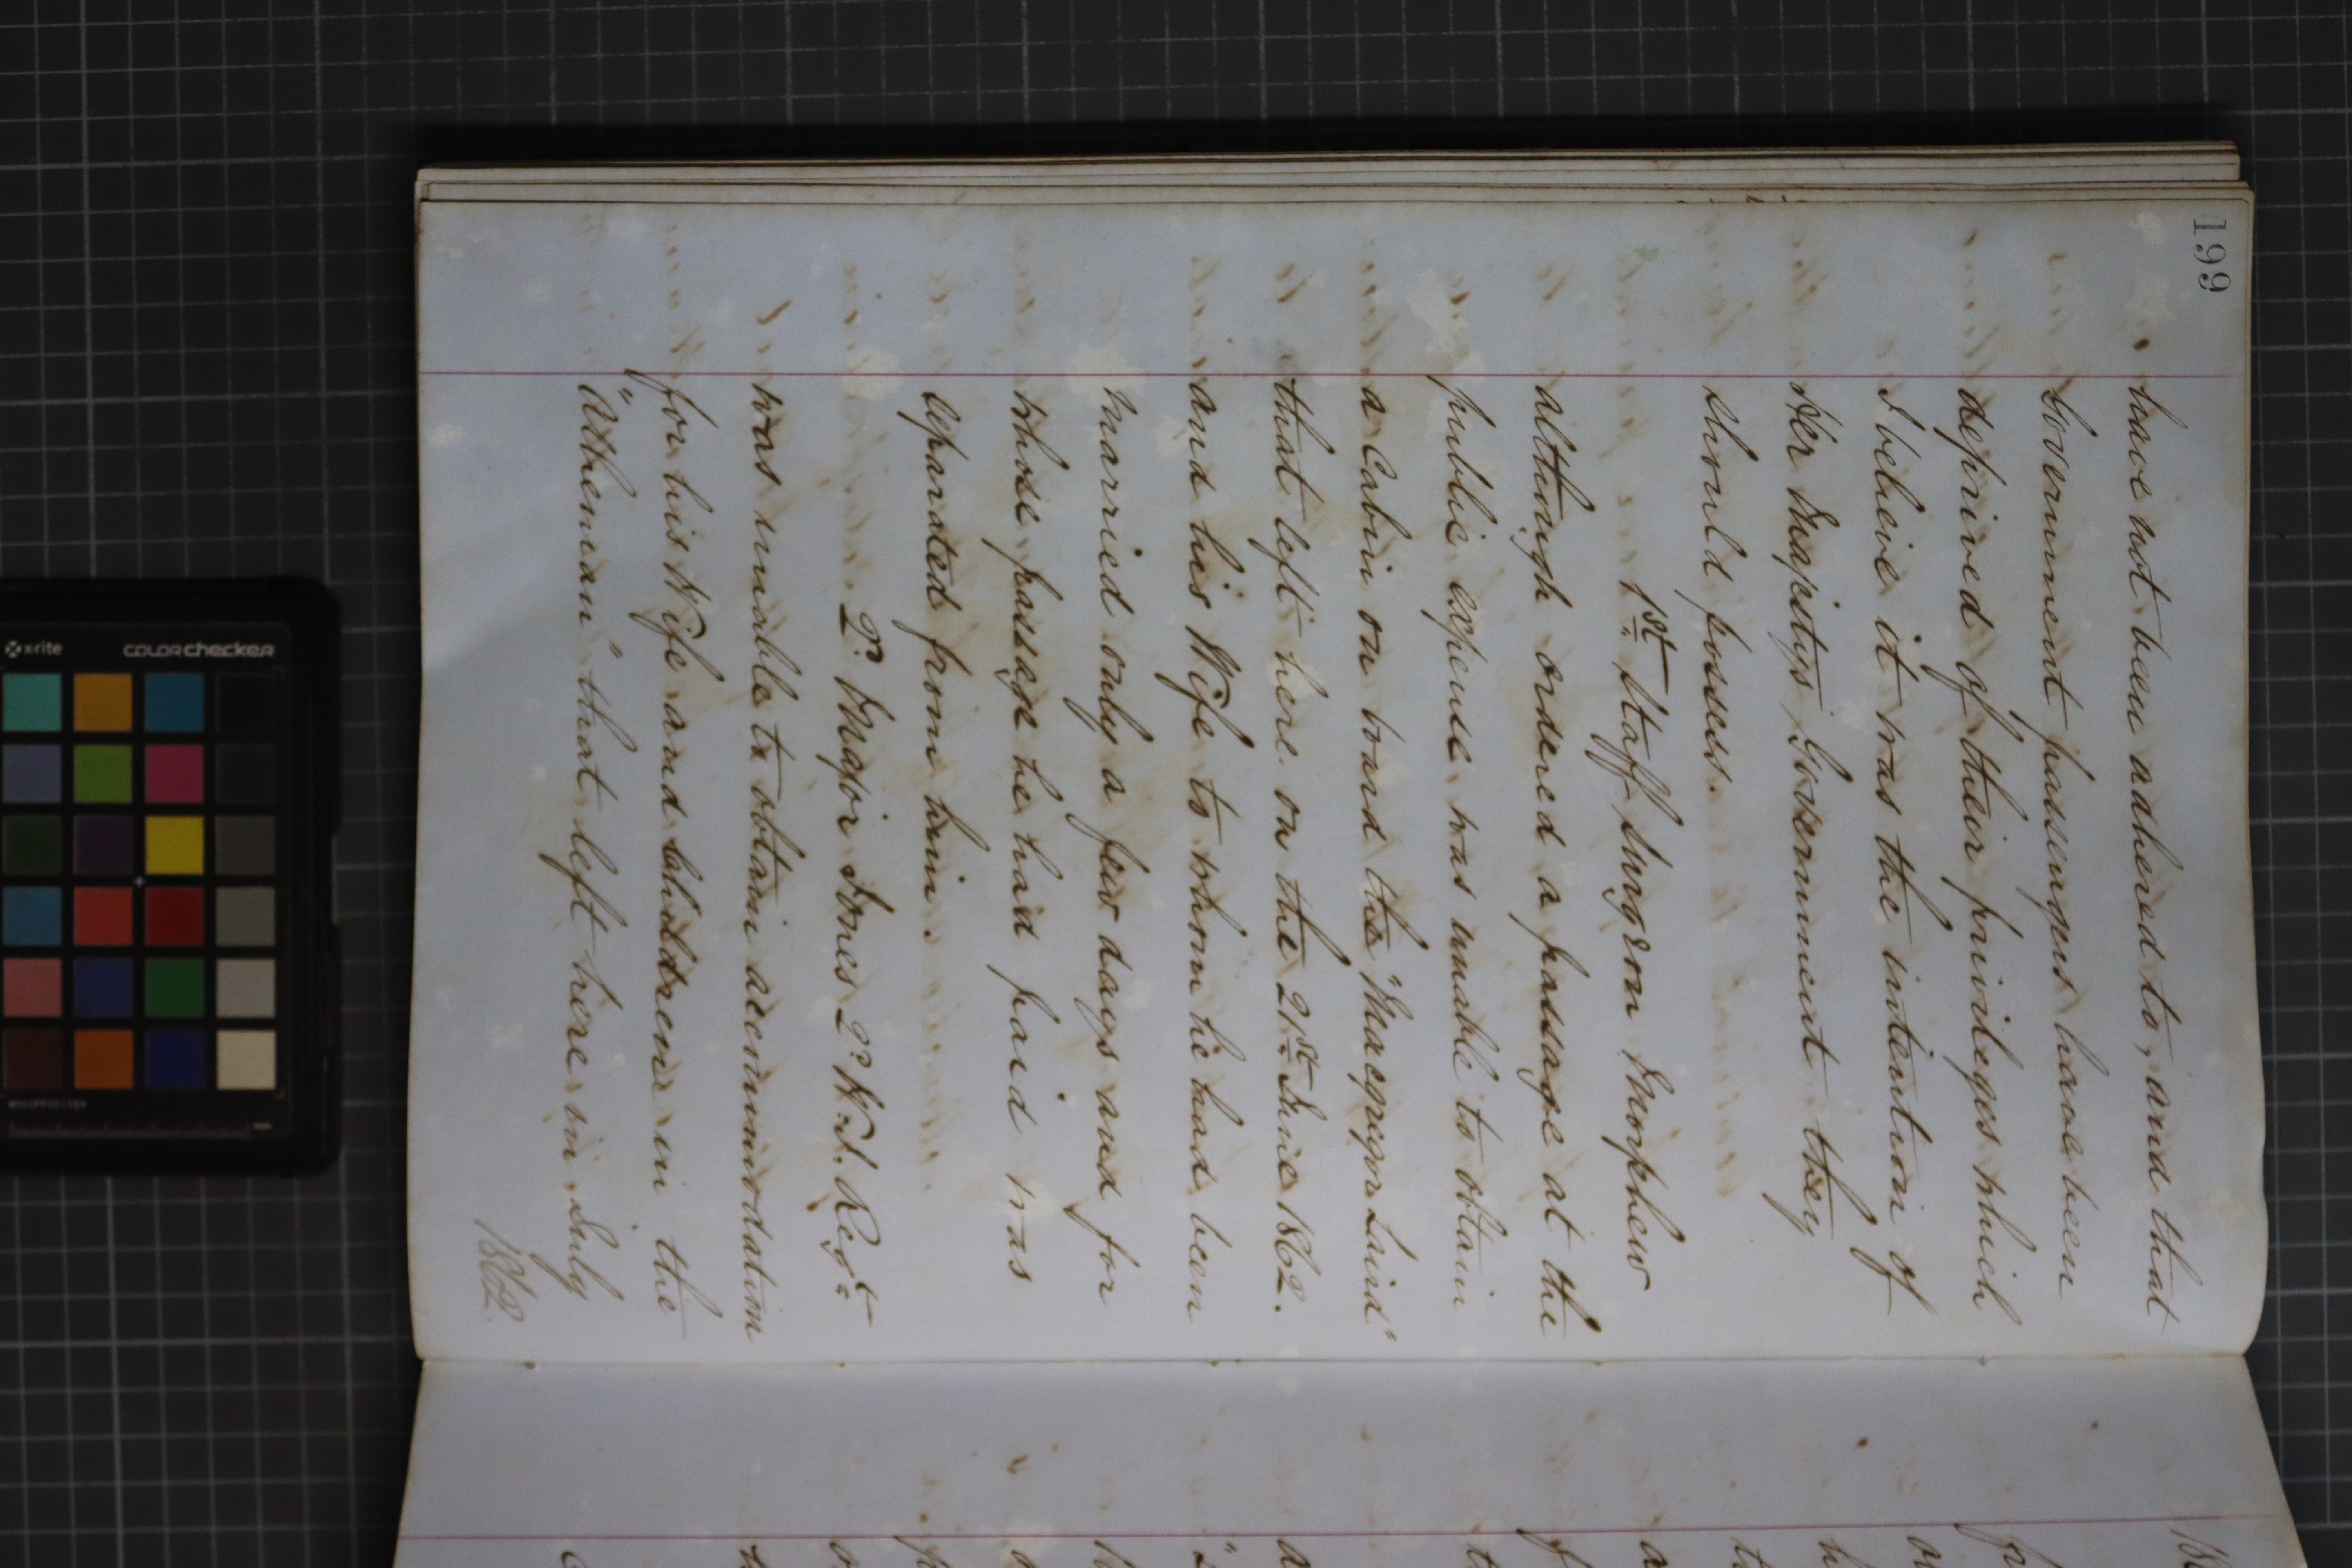 199
have not been adhered to, and that
Government passengers have been
deprived of their privileges which
I believe it was the intention of
Her Majestys Government they
should possess.
1st Staff Surgeon Morphew
although ordered a passage at the
public expense was unable to obtain
a Cabin on board the "Macgregor Laird"
that left here on the 21st June 1862.
and his Wife to whom he had been
married only a few days and for
whose passage he had paid was
separated from him.
2d Major Jones 2d W.I. Regt
was unable to obtain accommodation
for his Wife and Childdren in the
"Athenian" that left here in July
1862.